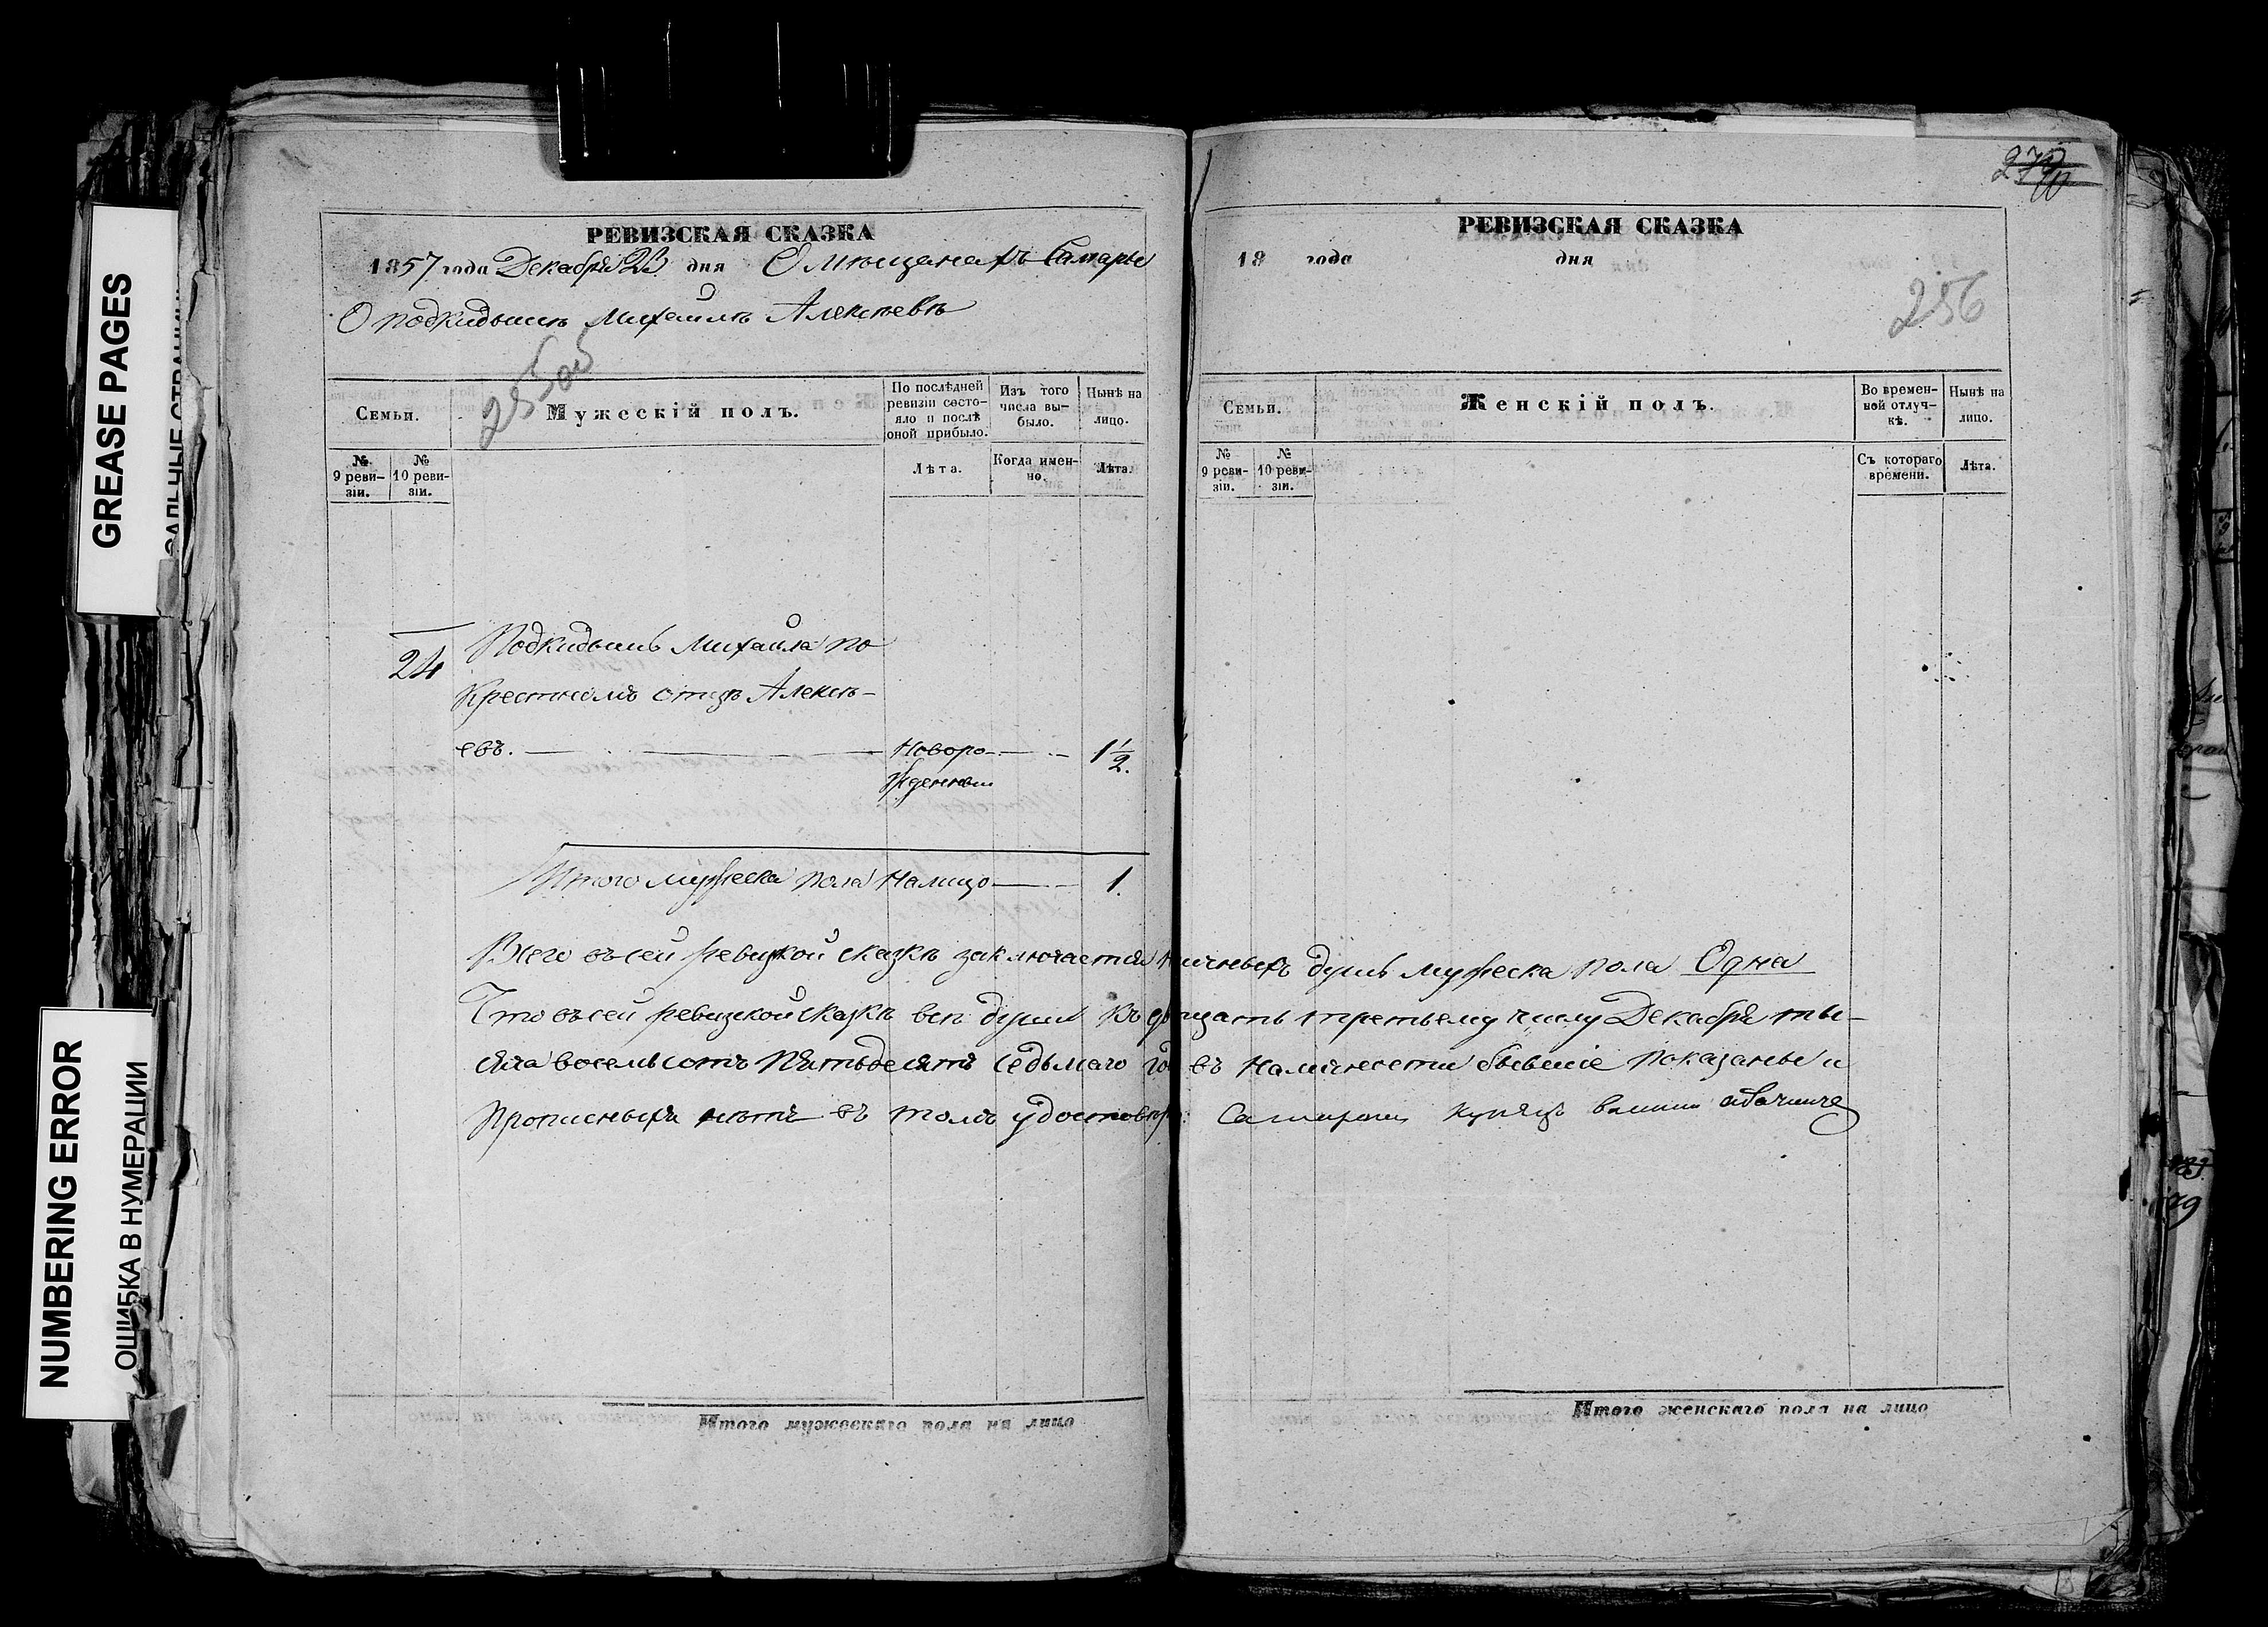 GREASE PAGES
NUMBERING ERROR
ОШИБКА В НУМЕРАЦИИ
РЕВИЗСКАЯ СКАЗКА
1857 года Декабря 23 дня О мѣщанахъ Самары
О подкидышѣ Михаилѣ Алексѣевѣ
255об
Семьи.
Мужескій полъ.
По послѣдней ревизіи состояло и послѣ оной прибыло.
Изъ того числа выбыло.
Нынѣ на лицо.
№ 9 ревизіи.
№ 10 ревизіи.
Лѣта.
Когда именно.
Лѣта.
24
Подкидышь Михаила по
Крестномъ отцѣ Алексѣ-
евъ.
Новоро-
жденный
1 1/2.
Итого мужеска пола Налицо 1.
Всего въ сей ревизкой сказкѣ заключается
Что въ сей ревизской сказкѣ всѣ души Къ
сяча восемьсотъ Пятьдесятъ седьмаго
Прописныхъ нѣтъ въ томъ удостовѣр
Итого мужескаго пола на лицо
РЕВИЗСКАЯ СКАЗКА
18 года дня
256
Семьи.
Женскій полъ.
Во временной отлучкѣ.
Нынѣ на лицо.
№ 9 ревизіи.
№ 10 ревизіи.
Съ котораго времени.
Лѣта.
личныхъ душъ мужеска пола Одна
двацать третьему числу Декабря ты-
въ Наличности бывшіе показаны и
купецъ
Итого женскаго пола на лицо